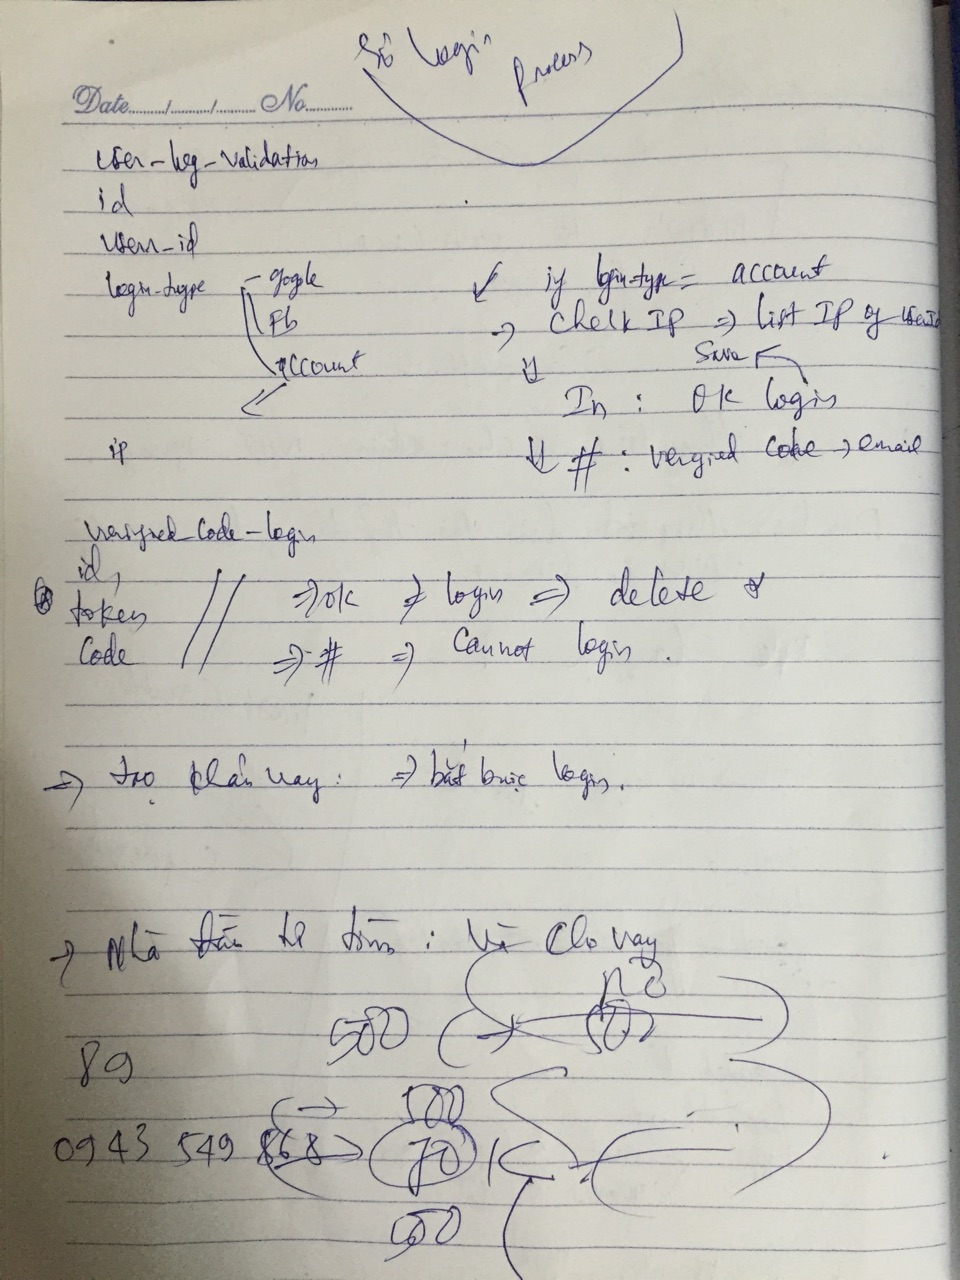 login
process
Date......../......../........ No............
user-log-validation
id
user-id
login-type - google
Fb
account
ip
✓ if login-type = account
→ Check IP ⇒ list IP of userId
Save
In : OK login
# : verified code → email
verified_code-login
id,
token
code
⇒ ok ⇒ login ⇒ delete
⇒ # ⇒ Cannot login.
⇒ tạo khoản vay : ⇒ bắt buộc login.
→ Nhà đầu tư : Ví cho vay
500
89
500
0943 549 868
70 K